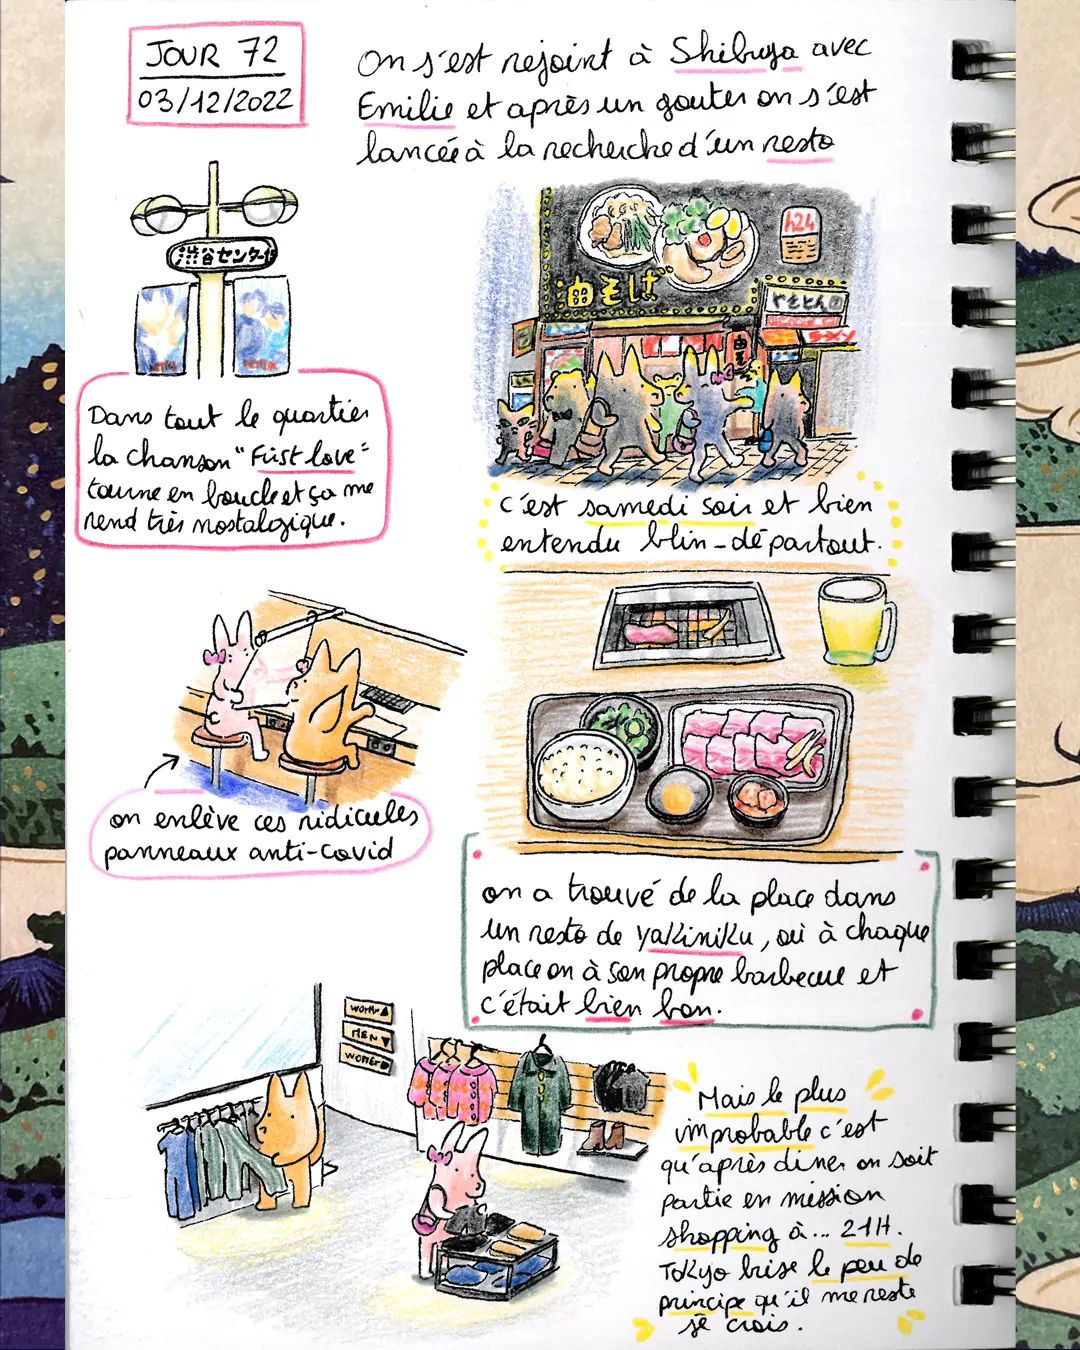 JOUR 72
03/12/2022
On s'est rejoint à Shibuya avec
Emilie et après un gouter on s'est
lancée à la recherche d'un resto
渋谷センター街
NETFLIX
NETFLIX
Dans tout le quartier
la chanson "First love"
tourne en boucle et ça me
rend très nostalgique.
h24
油そば
油そば
c'est samedi soir et bien
entendu blin-dé partout.
on enlève ces ridicules
panneaux anti-covid
on a trouvé de la place dans
un resto de yakiniku, où à chaque
place on à son propre barbecue et
c'était bien bon.
MEN
Mais le plus
improbable c'est
qu'après diner on soit
partie en mission
shopping à... 21H.
Tokyo brise le peu de
principe qu'il me reste
je crois.